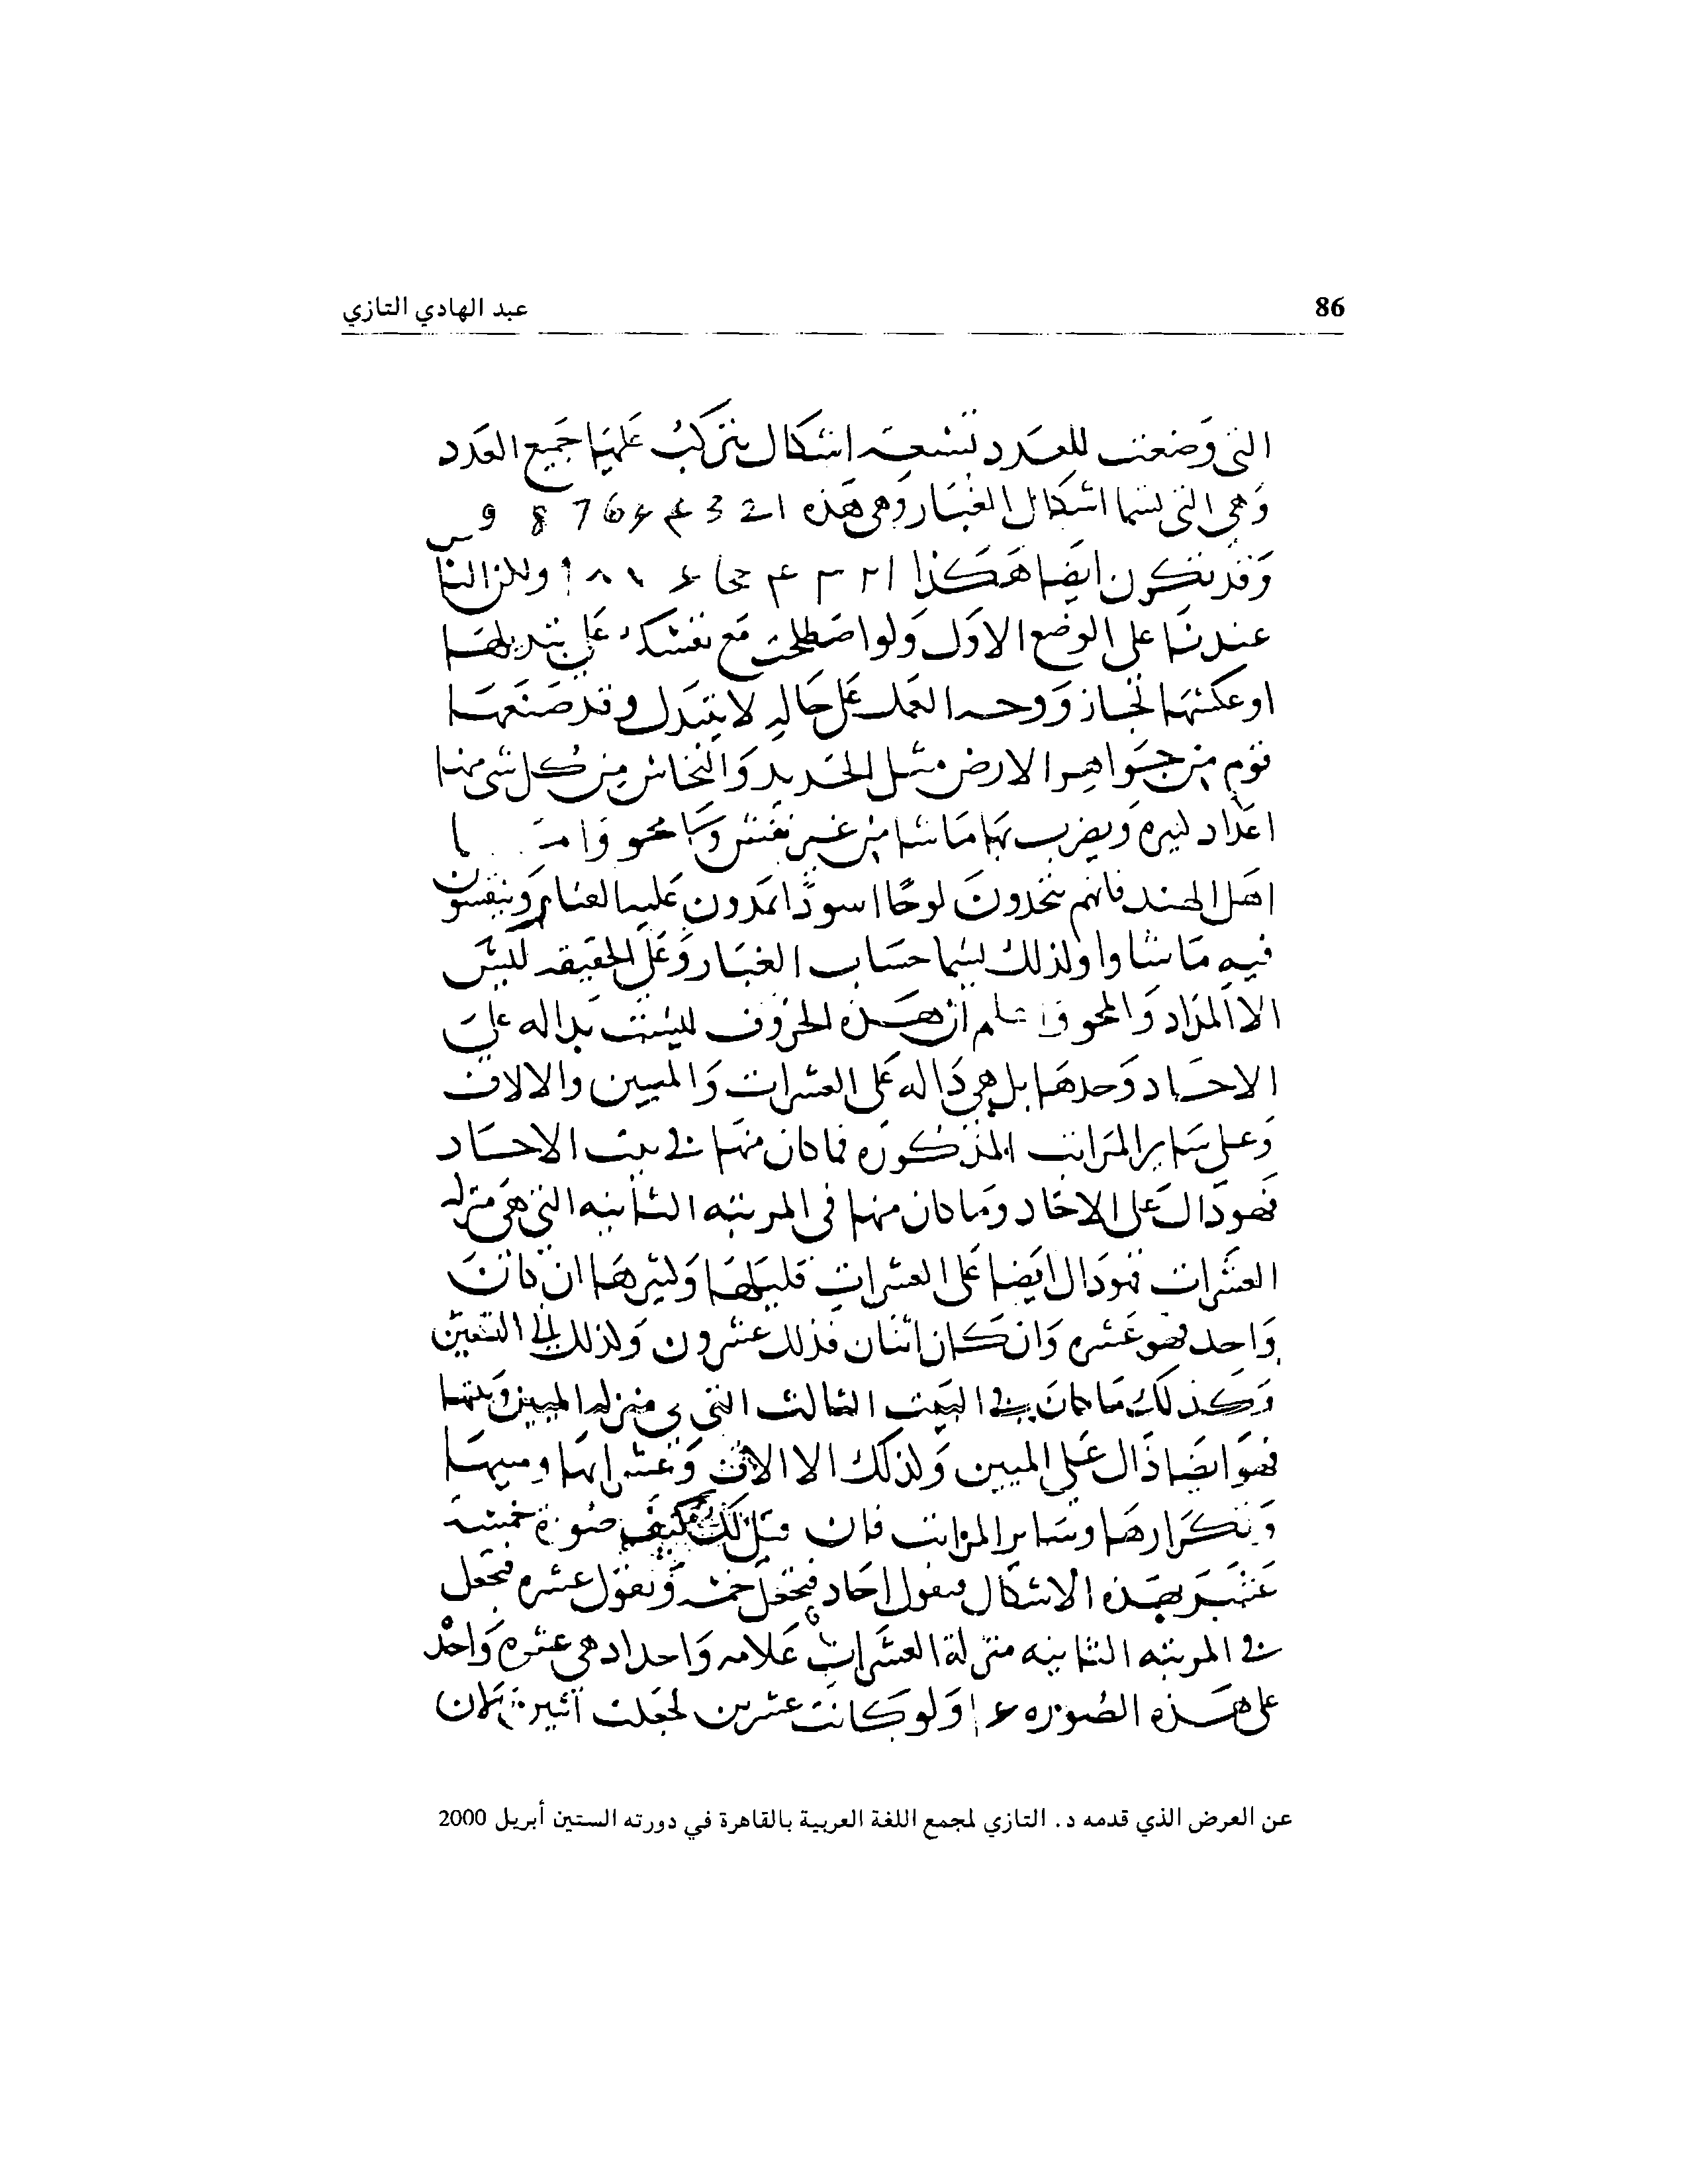 86
عبد الهادي التازي
التي وضعت للعدد تسعة اشكال يتركب عليها جميع العدد
وهي التي تسما اشكال الغبار وهي هذه 1 2 3 6 7 8 9
وقد تكون ايضا هكذا
عندنا على الوضع الاول ولو اصطلحت مع نفسك على تبديلها
او عكسها لجاز ووجه العمل على حاله لا يتبدل وقد صنعها
قوم من جواهر الارض مثل الحديد والنحاس من كل شي منها
اعداد كثيره ويضرب بها ما شا من غير نقش ولا محو واما
اهل الهند فانهم يتخذون لوحا اسودا يمدون عليه الغبار وينقشون
فيه ما شاوا ولذلك يسما حساب الغبار وعلى الحقيقه ليس
الا المداد والمحو واعلم ان هذه الحروف ليست بداله على
الاحاد وحدها بل هي داله على العشرات والميين والالاف
وعلى ساير المراتب المذكوره فما كان منها في بيت الاحاد
فهو دال على الاحاد وما كان منها في المرتبه الثانيه التي هي منزله
العشرات فهو دال ايضا على العشرات قليلها وكثيرها ان كانت
واحد فهو عشره وان كان اثنان فذلك عشرون وكذلك الى التسعين
وكذلك ما كان في البيت الثالث التي هي منزله الميين
فهو ايضا دال على الميين وكذلك الا الالاف وعشراتها وميينها
وتكرارها وساير المراتب فان قيل لك كيف صورة خمسة
عشر بهذه الاشكال فيقول احاد فتجعل خمسه وتقول عشره فتجعل
في المرتبه الثانيه منزلة العشرات علامه واحد اد هي عشره واحد
على هذه الصوره ولو كانت عشرين لجعلت اثنين
عن العرض الذي قدمه د. التازي لمجمع اللغة العربية بالقاهرة في دورته الستين أبريل 2000